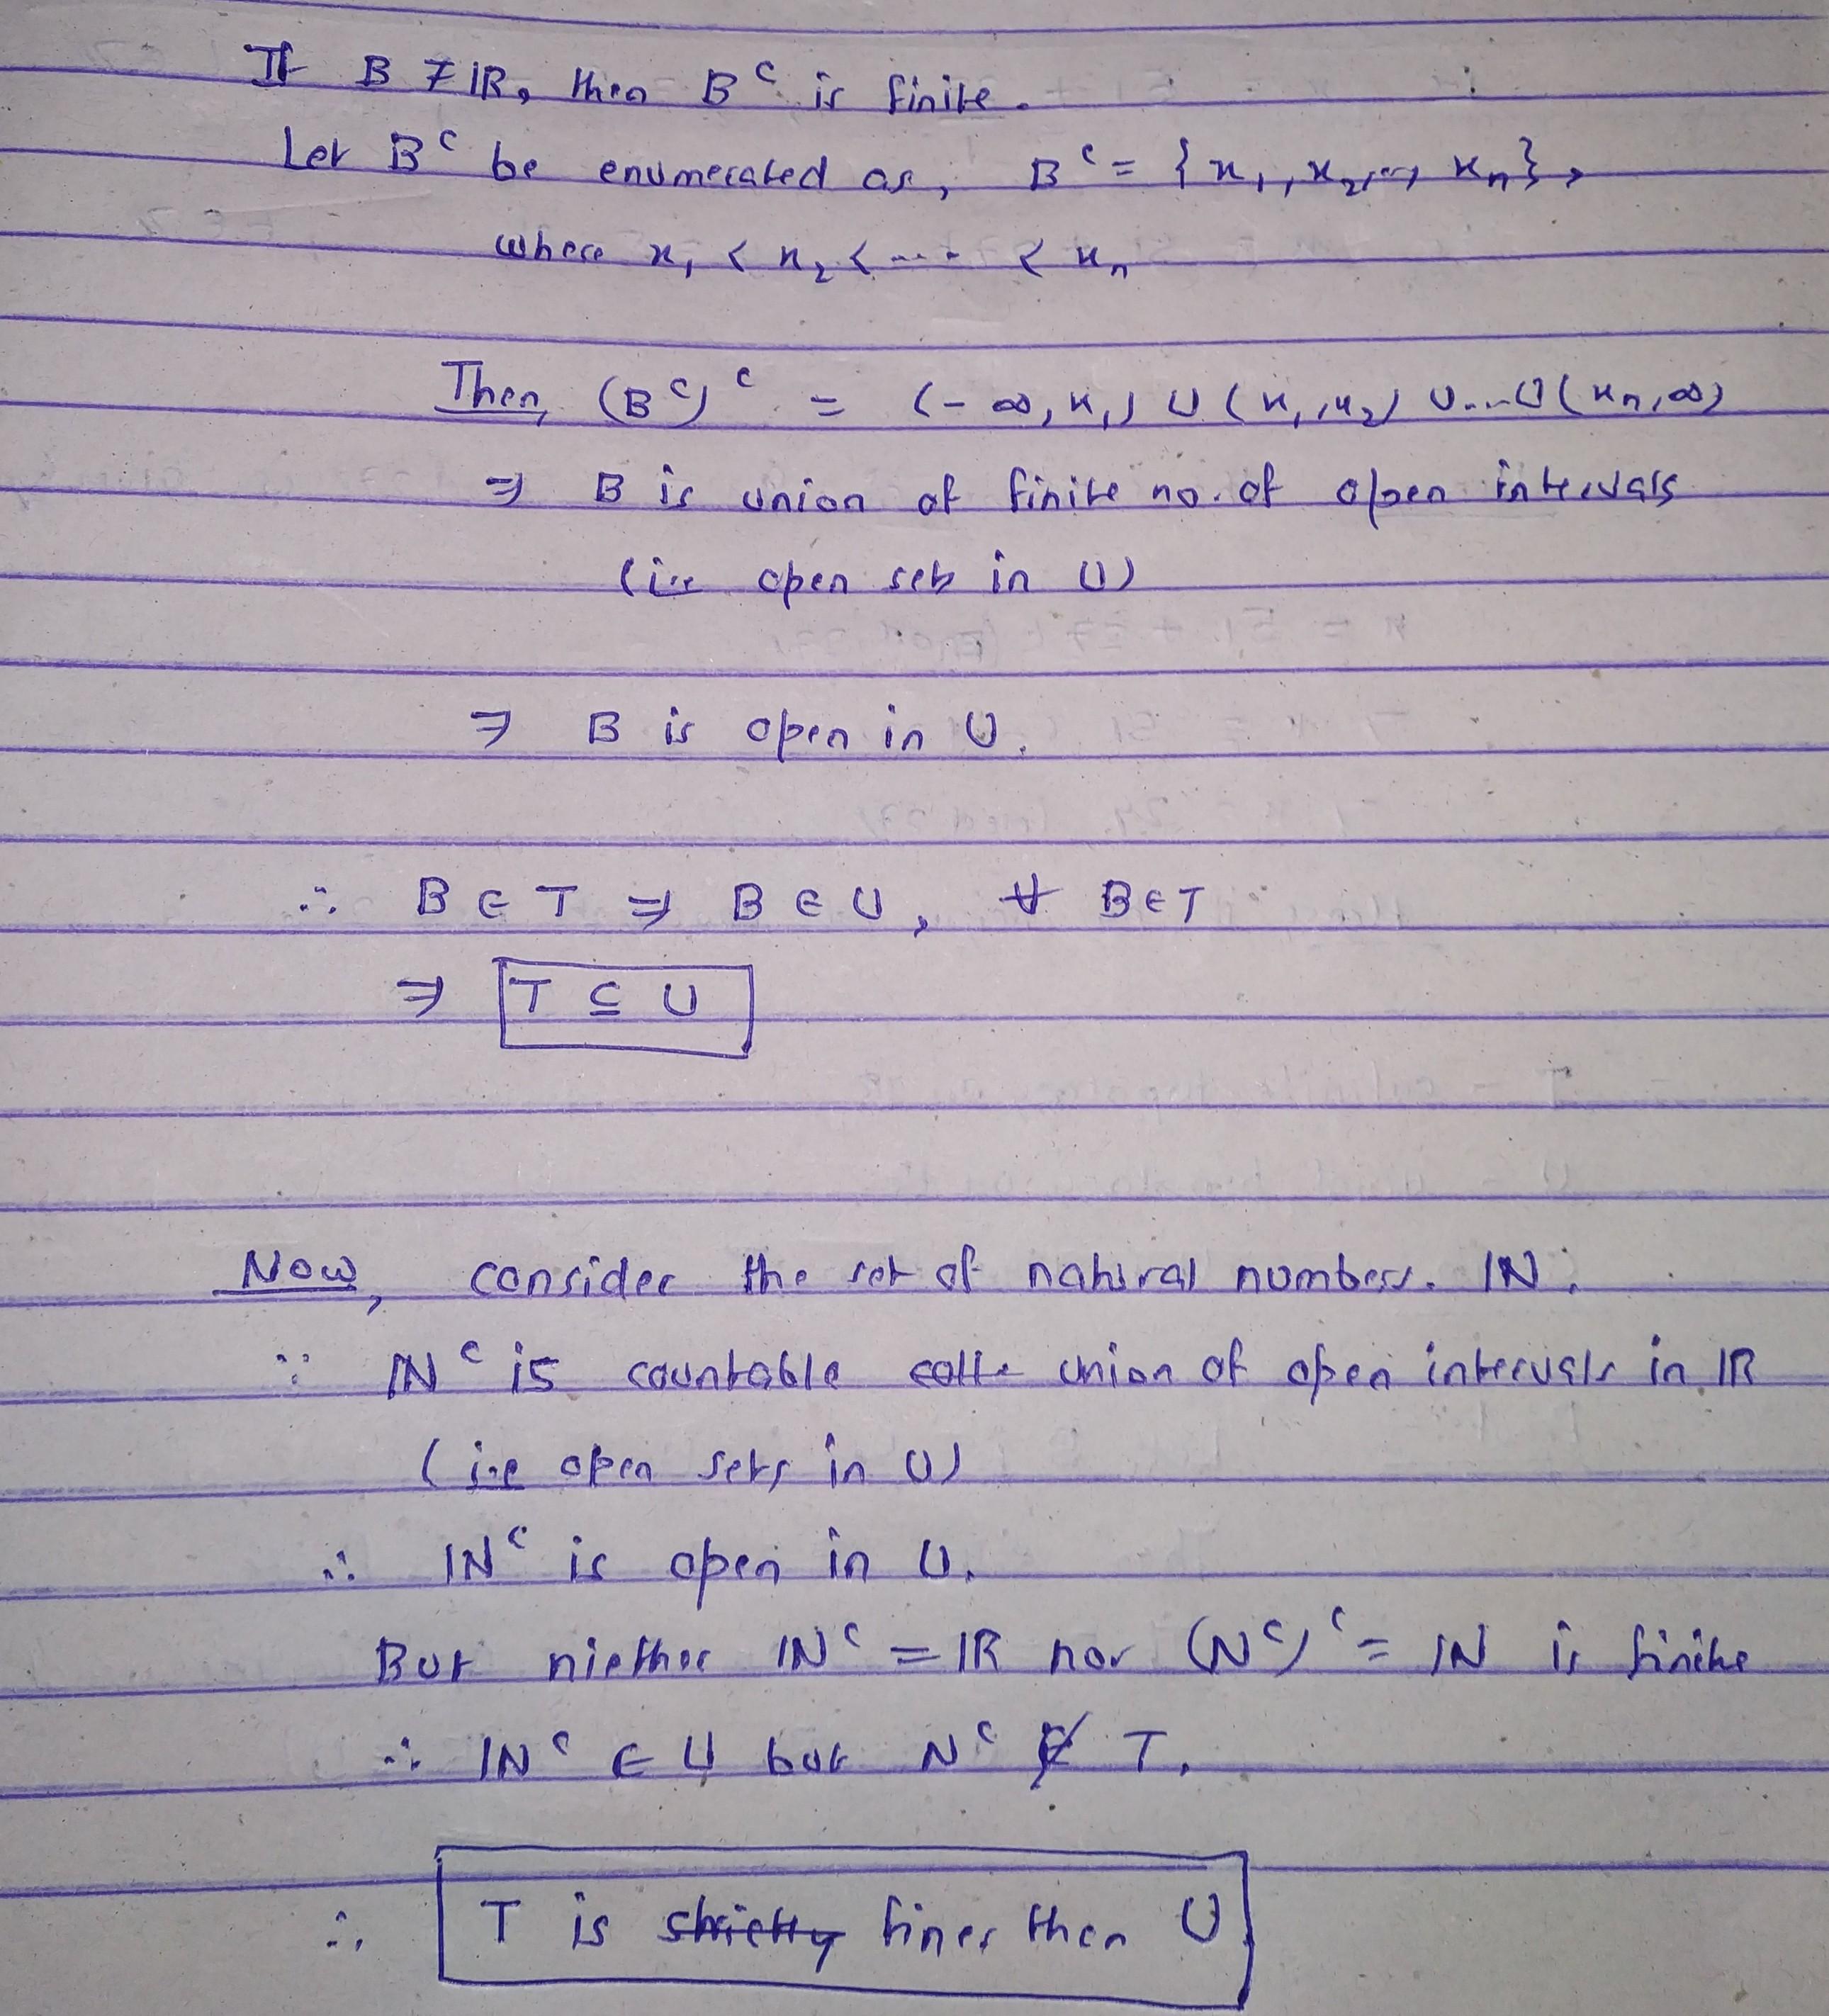 If B ≠ IR, then Bᶜ is finite.
Let Bᶜ be enumerated as, Bᶜ = {x₁, x₂, ..., xₙ},
where x₁ < x₂ < .... < xₙ
Then, (Bᶜ)ᶜ = (-∞, x₁) ∪ (x₁, x₂) ∪...∪ (xₙ, ∞)
⇒ B is union of finite no. of open intervals
(i.e open sets in U)
⇒ B is open in U.
∴ B ∈ T ⇒ B ∈ U, ∀ B ∈ T
⇒ T ⊆ U
Now, consider the set of natural numbers. IN.
∵ INᶜ is countable union of open intervals in IR
(i.e open sets in U)
∴ INᶜ is open in U.
But niether INᶜ = IR nor (Nᶜ)ᶜ = IN is finite
∴ INᶜ ∈ U but Nᶜ ∉ T.
∴ T is strictly finer then U